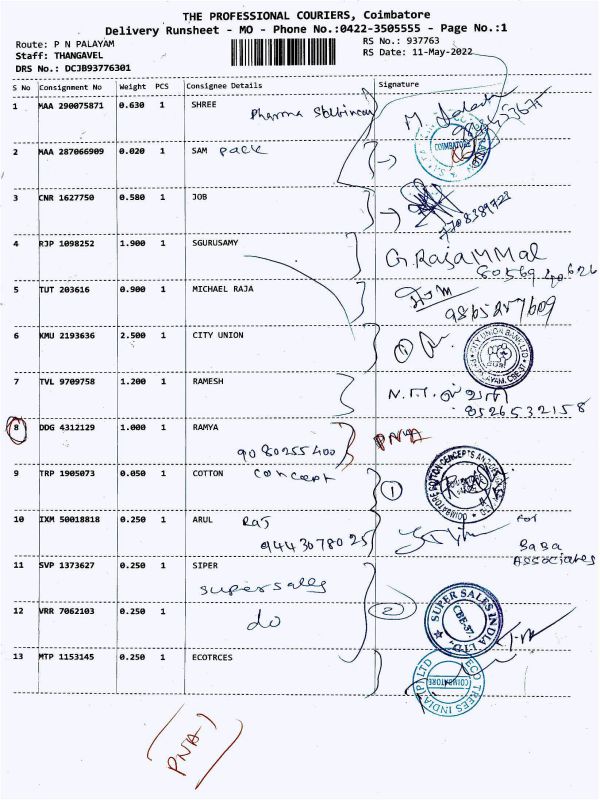 THE PROFESSIONAL COURIERS, Coimbatore
Delivery Runsheet - MO - Phone No.:0422-3505555 - Page No.:1
Route: P N PALAYAM
RS No.: 937763
Staff: THANGAVEL
RS Date: 11-May-2022
DRS No.: DCJB93776301
S No Consignment No Weight PCS Consignee Details Signature
1 MAA 290075871 0.630 1 SHREE
Pharma
COIMBATORE
2 MAA 287066909 0.020 1 SAM pack
3 CNR 1627750 0.580 1 JOB
4 RJP 1098252 1.900 1 SGURUSAMY
G. RAJAMMAL
80569 40626
5 TUT 203616 0.900 1 MICHAEL RAJA
9865257609
6 KMU 2193636 2.500 1 CITY UNION
CITY UNION BANK LTD
7 TVL 9709758 1.200 1 RAMESH
8526532158
8 DDG 4312129 1.000 1 RAMYA
9080255400 PNA
9 TRP 1905073 0.050 1 COTTON concept
1
10 IXM 50018818 0.250 1 ARUL RAJ
9443078025
For
BaBa
Associates
11 SVP 1373627 0.250 1 SIPER
supersales
12 VRR 7062103 0.250 1
do
2
SUPER SALES INDIA LTD.
CBE-37.
13 MTP 1153145 0.250 1 ECOTRCES
ECO TREES INDIA (P) LTD
COIMBATORE
PNA